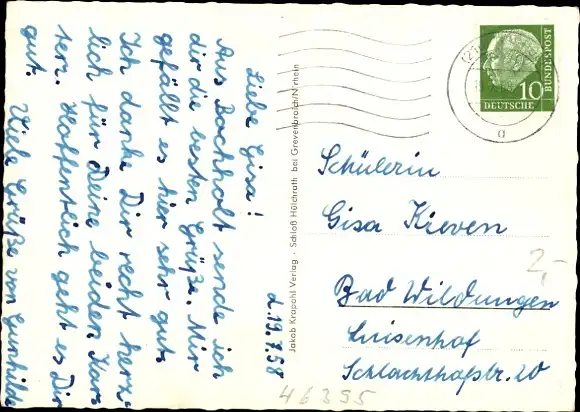 d 19.7.58
Liebe Gisa!
Aus Bochholt sende ich
dir die besten Grüße. Mir
gefällt es hier sehr gut.
Ich danke Dir recht herz-
lich für Deine beiden Kar-
ten. Hoffentlich geht es Dir
gut. Viele Grüße von Gunhilde
Jakob Krapohl Verlag · Schloß Hülchrath bei Grevenbroich/N'rhein
10
DEUTSCHE
BUNDESPOST
Schülerin
Gisa Kieven
Bad Wildungen
Luisenhof
Schlachthofstr. 20
2,-
46395